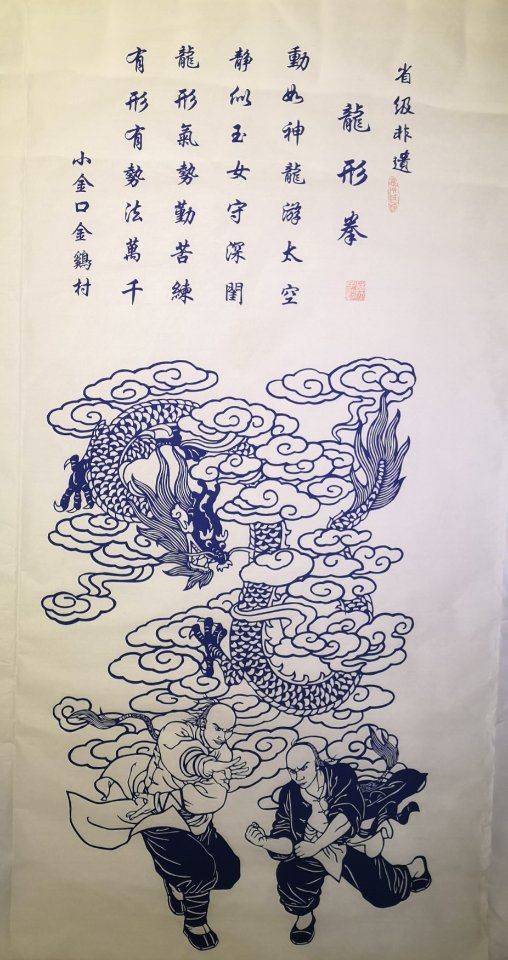 省级非遗
龍形拳
動如神龍游太空
静似玉女守深閨
龍形氣勢勤苦練
有形有勢法萬千
小金口金鷄村